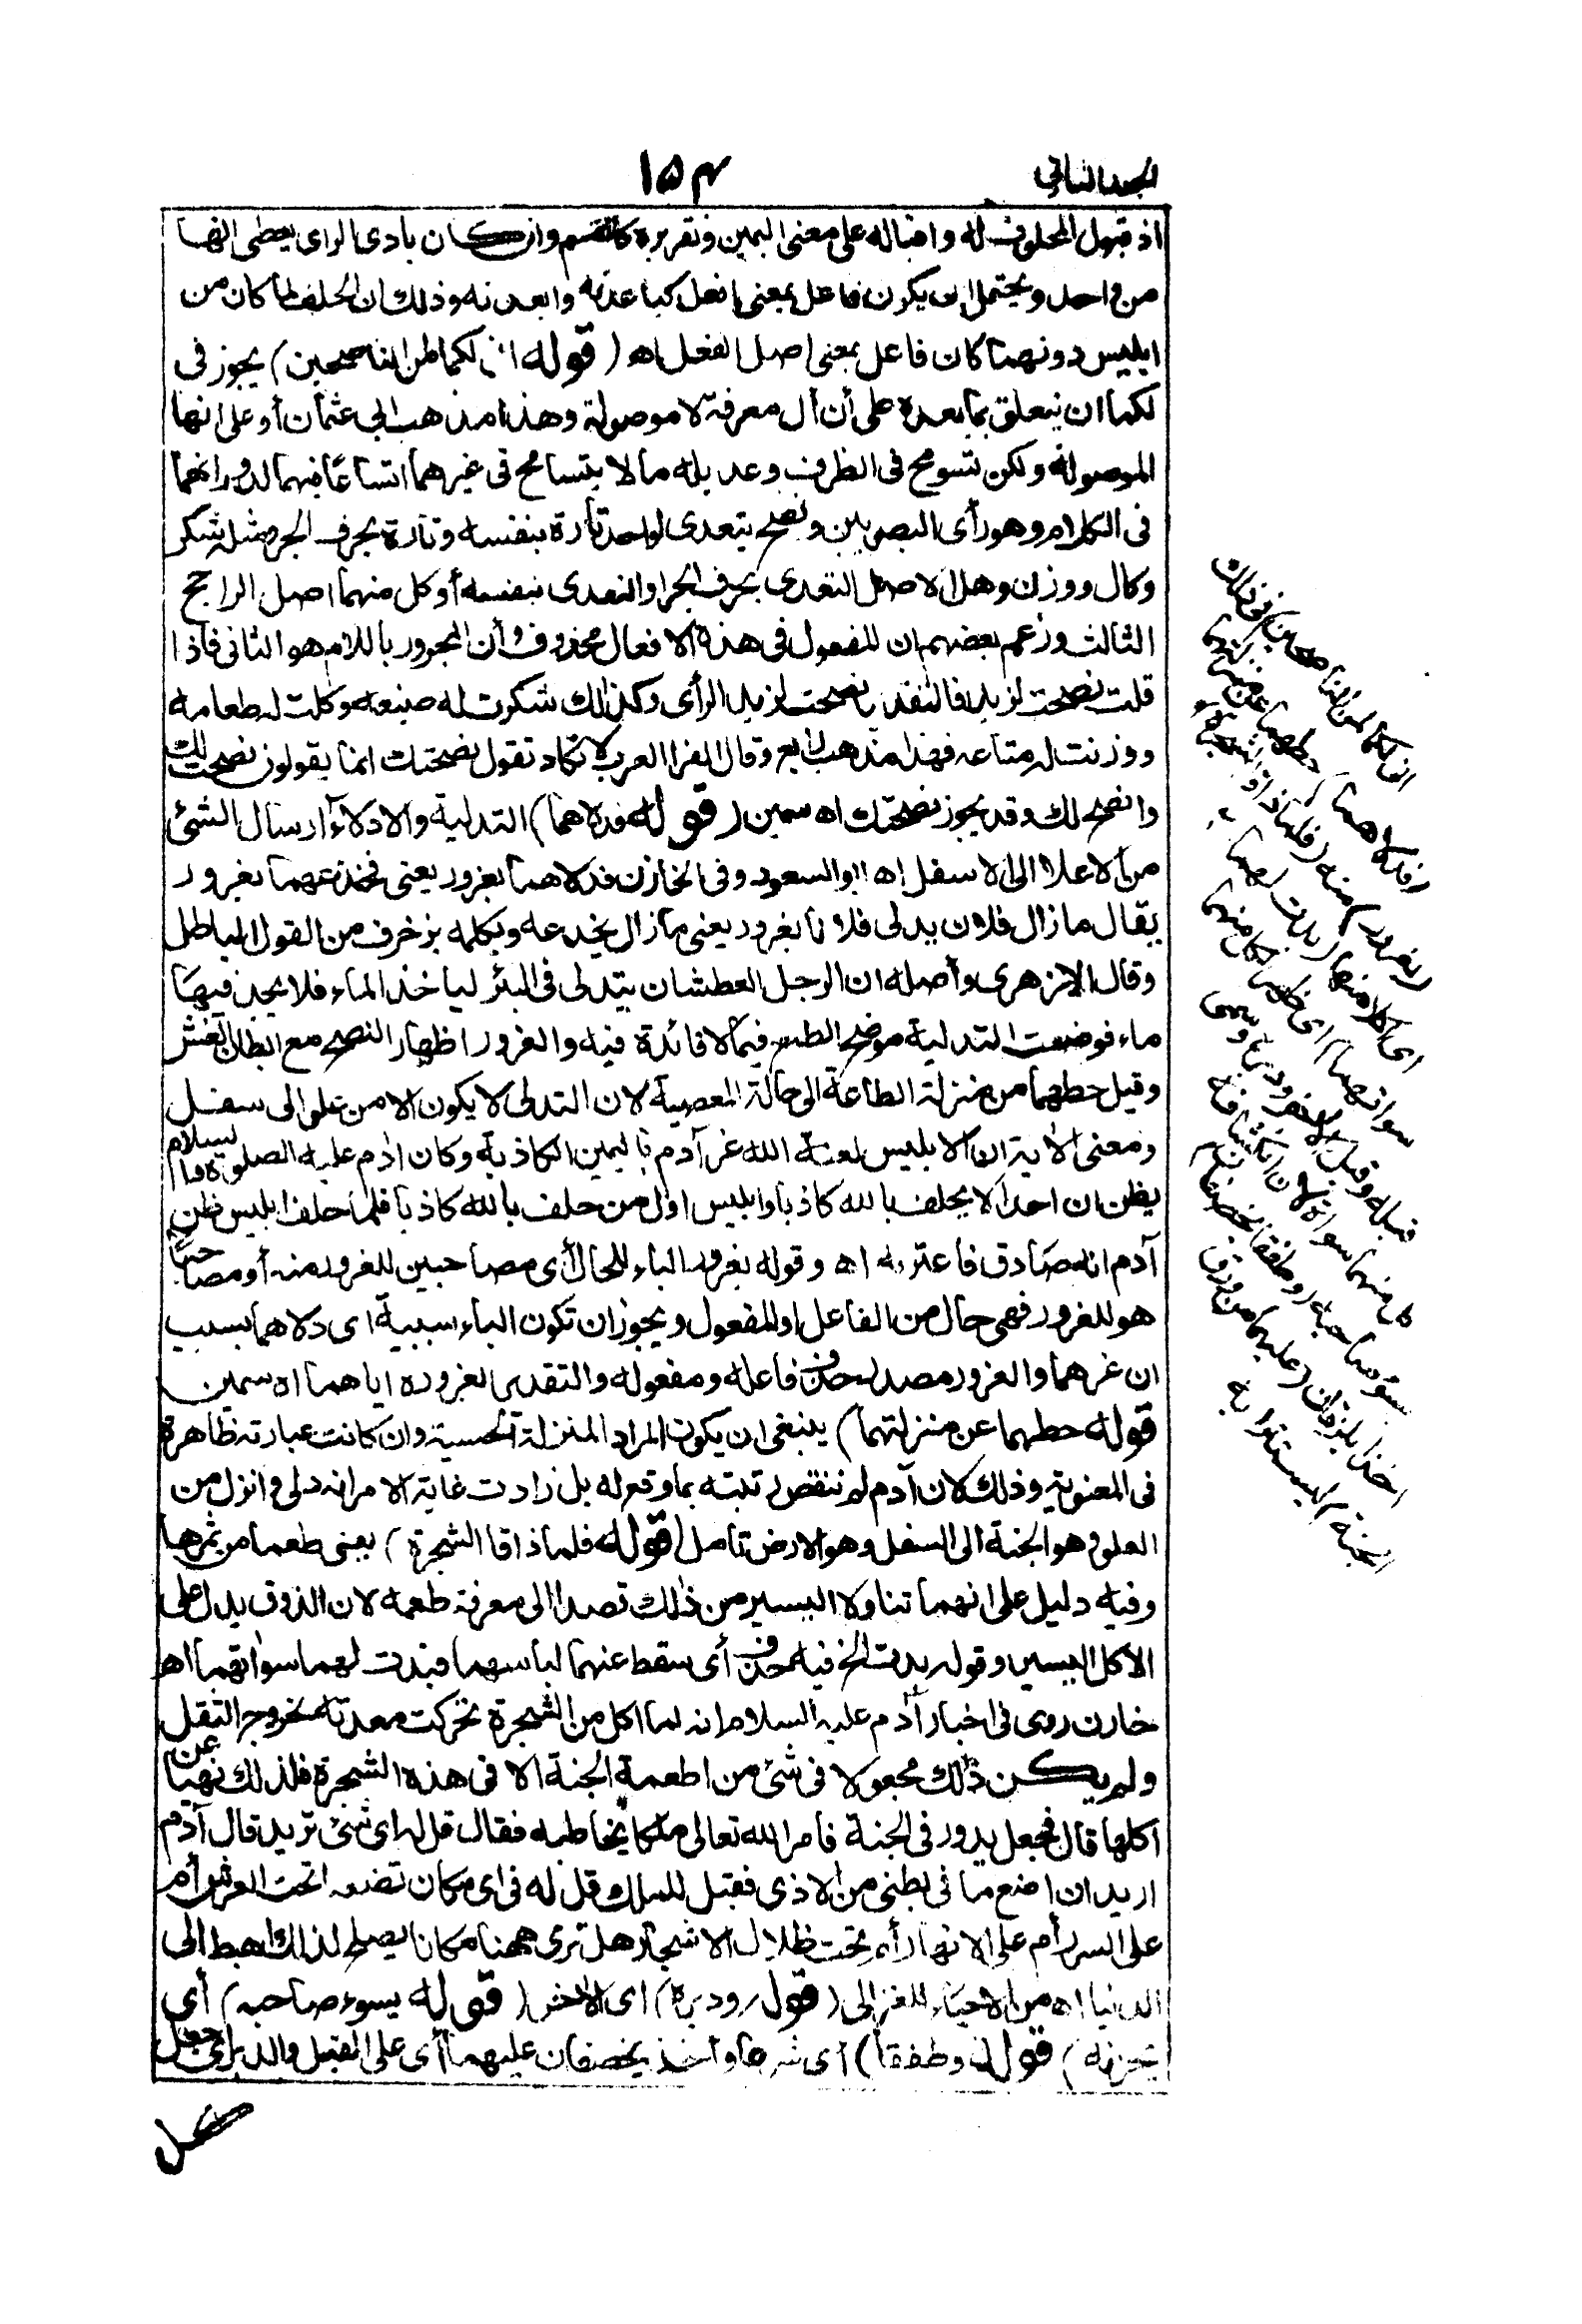 الجلد الثاني
١٥٤
اذ قبول المحلوف له واقباله على معنى اليمين وتقريره كالقسم وان كان بادى الراى يعطى انها
من واحد ويحتمل ان يكون فاعل بمعنى افعل كباعدته وابعدته وذلك ان الحلف لما كان من
ابليس دونهما كان فاعل بمعنى اصل الفعل اه (قوله انى لكما لمن الناصحين) يجوز فى
لكما ان يتعلق بما بعده على أن أل معرفة لا موصولة وهذا مذهب ابى عثمان أو على انها
الموصولة ولكن تسومح فى الظرف وعديله ما لا يتسامح فى غيرهما اتساعًا فيهما لدورانهما
فى الكلام وهو رأى البصريين ونصح يتعدى لواحد تارة بنفسه وتارة بحرف الجر مثله شكر
وكال ووزن وهل الاصل التعدى بحرف الجر او التعدى بنفسه أو كل منهما اصل الراجح
الثالث وزعم بعضهم ان المفعول فى هذه الافعال محذوف وأن المجرور باللام هو الثانى فاذا
قلت نصحت لزيد فالتقدير نصحت لزيد الرأى وكذلك شكرت له صنيعه وكلت له طعامه
ووزنت له متاعه فهذا مذهب رابع وقال الفرا العرب لا تكاد تقول نصحتك انما يقولون نصحت لك
وانصح لك وقد يجوز نصحتك اه سمين (قوله فدلاهما) التدلية والادلاء ارسال الشئ
من الاعلا الى الاسفل اه ابو السعود وفى الخازن فدلاهما بغرور يعنى فخدعهما بغرور
يقال ما زال فلان يدلى فلانا بغرور يعنى ما زال يخدعه ويكلمه بزخرف من القول الباطل
وقال الازهرى وأصله ان الرجل العطشان يتدلى فى البئر لياخذ الماء فلا يجد فيها
ماء فوضعت التدلية موضع الطمع فيما لا فائدة فيه والغرور اظهار النصح مع ابطان الغش
وقيل حطهما من منزلة الطاعة الى حالة المعصية لان التدلى لا يكون الا من علو الى سفل
ومعنى الاية ان الابليس لعنه الله غر آدم باليمين الكاذبة وكان ادم عليه الصلوة والسلام
يظن ان احدا لا يحلف بالله كاذبا وابليس اول من حلف بالله كاذبا فلما حلف ابليس ظن
آدم انه صادق فاغتر به اه وقوله بغرور الباء للحال أى مصاحبين للغرور منه أو مصاحبا
هو للغرور فهى حال من الفاعل او المفعول ويجوز ان تكون الباء سببية اى دلاهما بسبب
ان غرهما والغرور مصدر حذف فاعله ومفعوله والتقدير بغروره اياهما اه سمين
قوله حطهما عن منزلتهما) ينبغى ان يكون المراد المنزلة الحسية وان كانت عبارته ظاهرة
فى المعنوية وذلك لان آدم لم تنقص رتبته بما وقع له بل زادت غاية الامر انه دلى وانزل من
العلو وهو الجنة الى السفل وهو الارض تامل (قوله فلما ذاقا الشجرة) يعنى طعما من ثمرها
وفيه دليل على انهما تناولا اليسير من ذلك قصدا الى معرفة طعمه لان الذوق يدل على
الاكل اليسير وقوله بدت الخ فيه حذف أى سقط عنهما لباسهما فبدت لهما سواتهما اه
خازن روى فى اخبار آدم عليه السلام انه لما اكل من الشجرة تحركت معدته لخروج الثقل
ولم يكن ذلك مجعولا فى شئ من اطعمة الجنة الا فى هذه الشجرة فلذلك نهيا عن
اكلها قال فجعل يدور فى الجنة فامر الله تعالى ملكا يخاطبه فقال قل له اى شئ تريد قال آدم
اريد ان اضع ما فى بطنى من الاذى فقيل للملك قل له فى اى مكان تضعه اتحت العرش أم
على السرر أم على الانهار أم تحت ظلال الاشجار هل ترى ههنا مكانا يصلح لذلك اهبط الى
الدنيا اه من الاحياء للغزالى (قوله ودبره) اى الاخر (قوله يسوء صاحبه) أى
يحزنه) قوله وطفقا) أى شرعا وأخذ يخصفان عليهما أى على القبل والدبر اى جعل
انى لكما لمن الناصحين) فى ذلك
(فدلاهما) حطهما عن منزلتهما
(بغرور) منه (فلما ذاقا الشجرة)
اى اكلا منها (بدت لهما
سواتهما) اى ظهر لكل منهما
قبله وقبل الاخر ودبره وسمى
كل منهما سواة لان انكشافه
يسوء صاحبه (وطفقا يخصفان)
اخذا يلزقان (عليهما من ورق
الجنة) ليستترا به